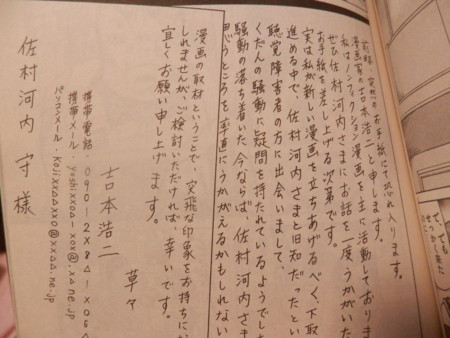 で、でも
せっかく
前略、突然のお手紙にて恐れ入ります。
漫画家の吉本浩二と申します。
私はノンフィクション漫画を主に活動しておりま
ぜひ佐村河内さまにお話を一度うかがいた
お手紙を差し上げる次第です。
実は私が新しい漫画を立ちあげるべく、下取
進める中で、佐村河内さまと旧知だったとい
聴覚障害者の方に出会いまして、
くだんの騒動に疑問を持たれているようでし
騒動の落ち着いた今ならば、佐村河内さま
思うところを率直にうかがえるかもしれない
漫画の取材ということで、突飛な印象をお持ちにな
しれませんが、ご検討いただければ、幸いです。
宜しくお願い申し上げます。
草々
吉本浩二
携帯電話・090-2x8△-x06
携帯メール・yoshixxo△-xox@.x△ne.jp
パソコンメール・kojixxo△xxo@xx△x.ne.jp
佐村河内 守 様